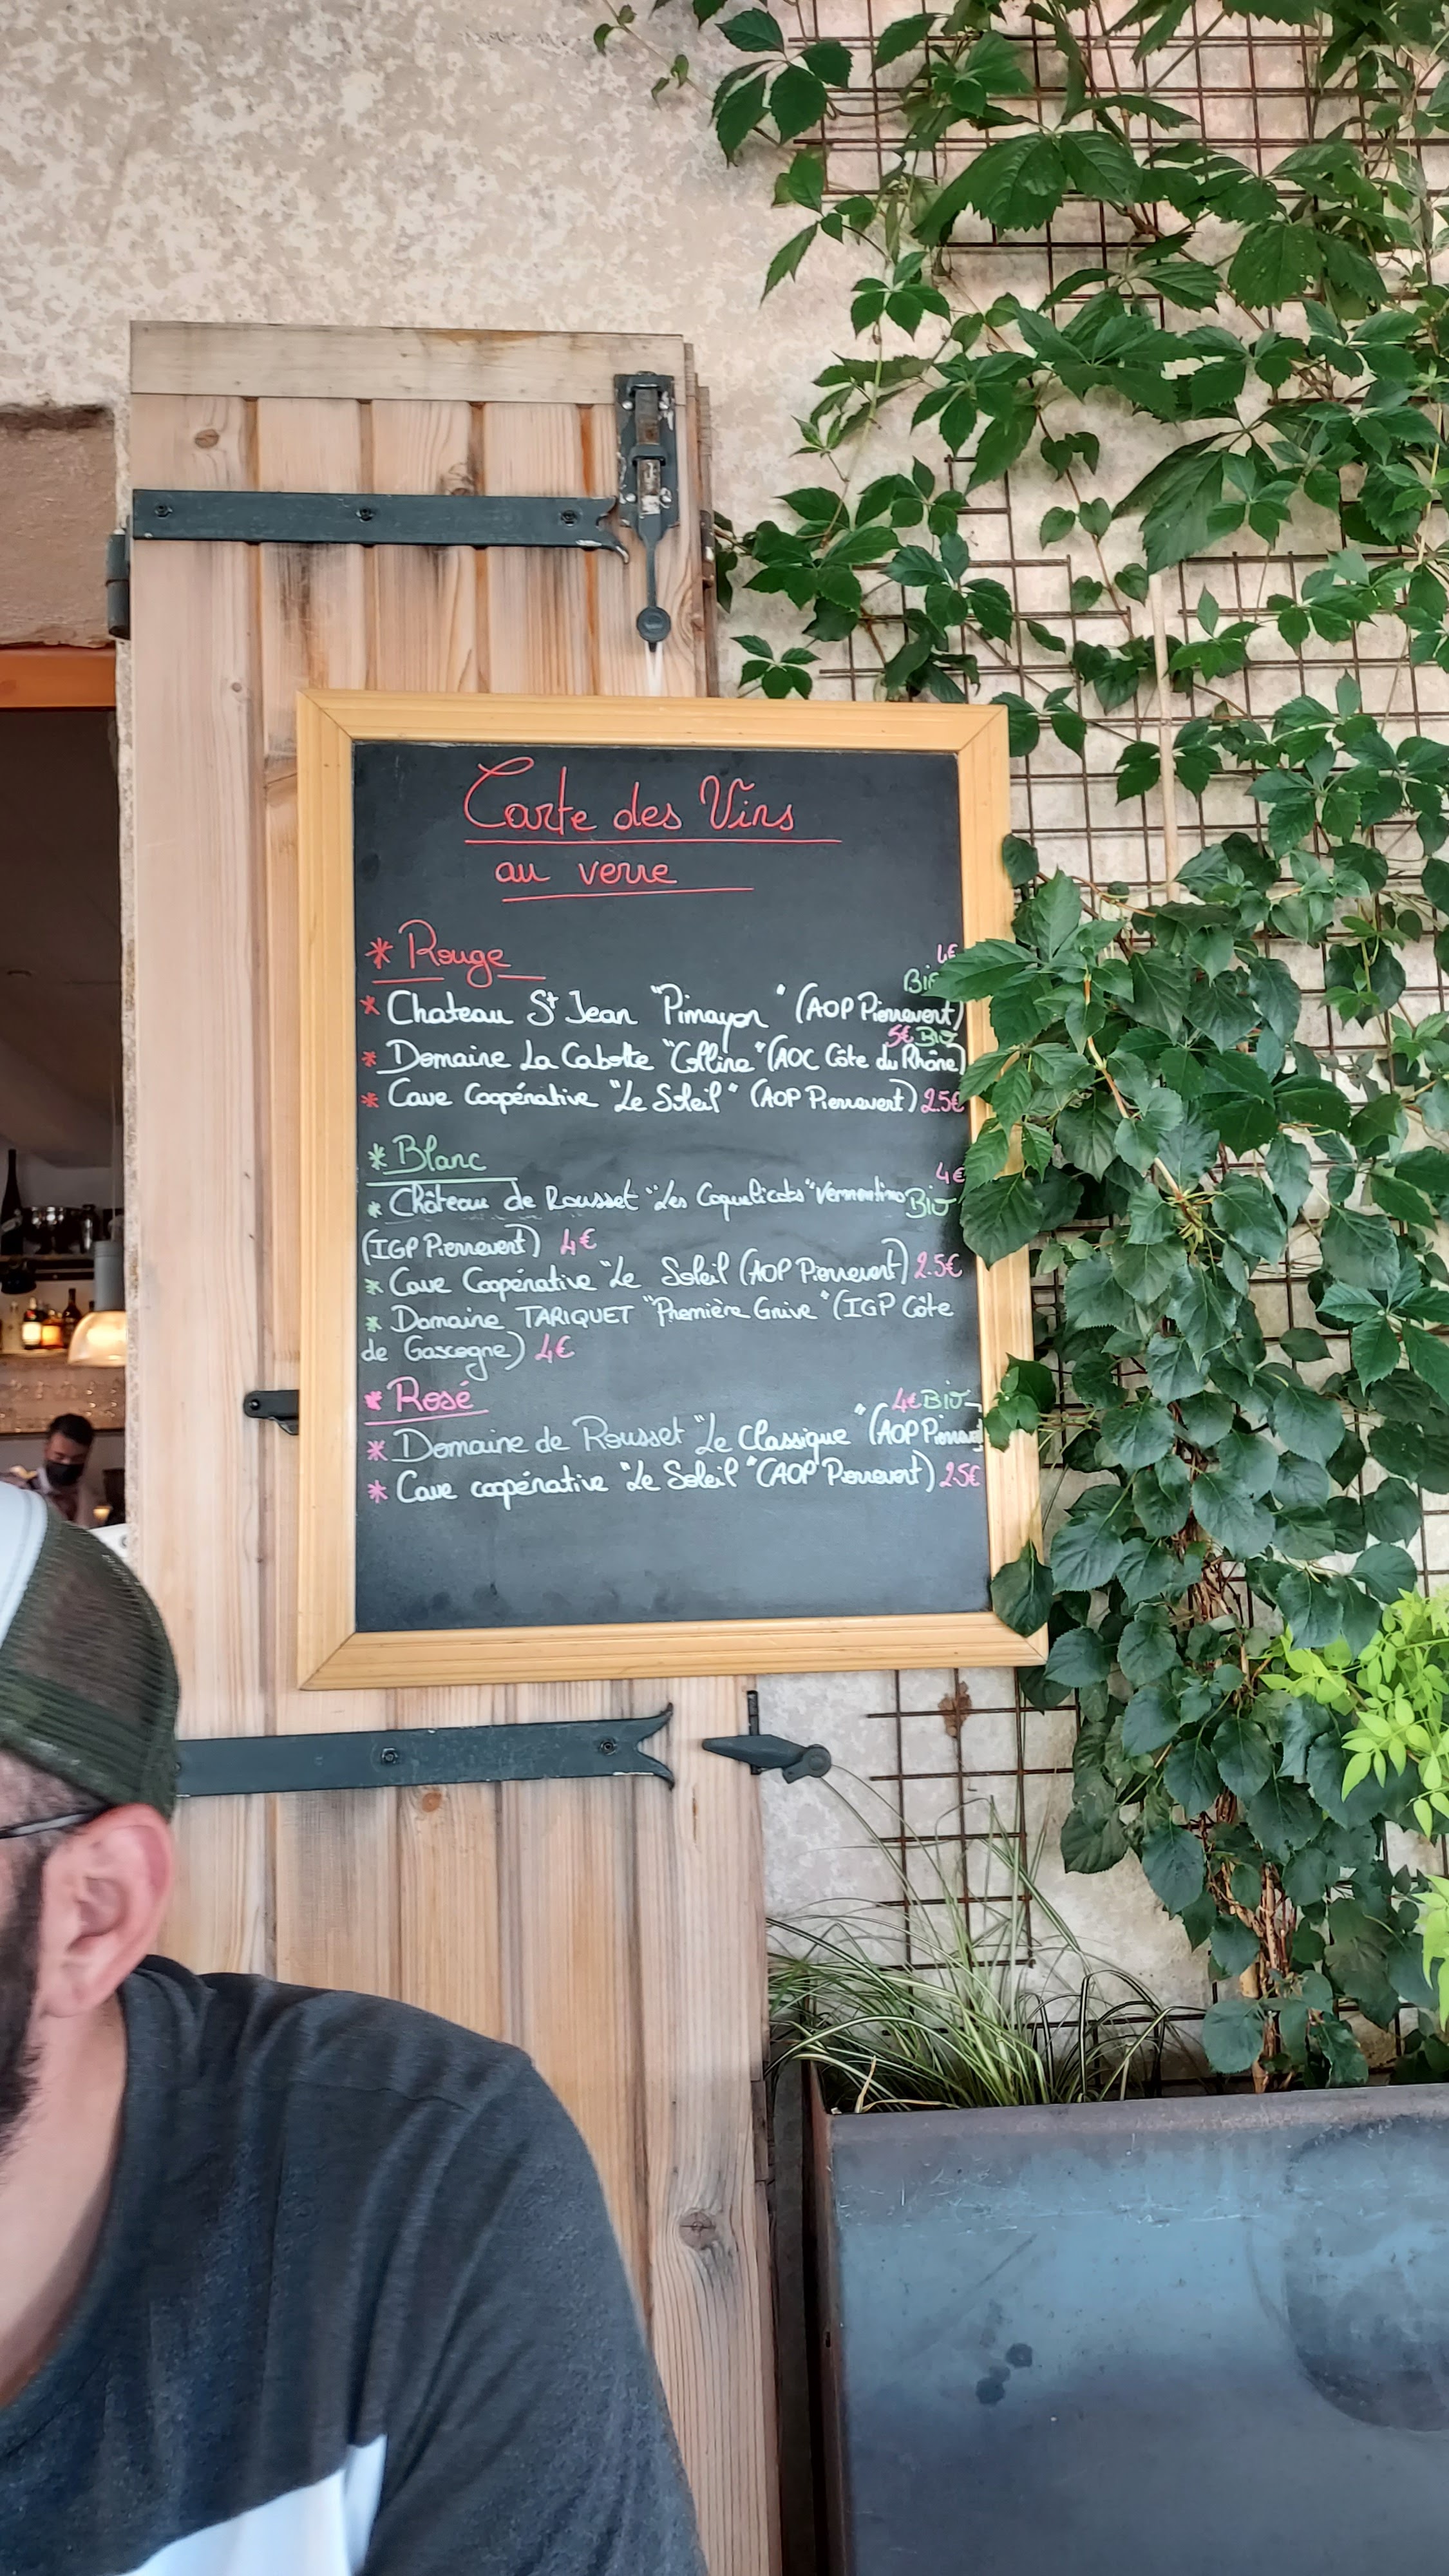 Carte des Vins
au verre
* Rouge
4€
Bio
* Chateau St Jean "Pimayon" (AOP Pierrevert)
5€ Bio
* Domaine La Cabotte "Colline" (AOC Côte du Rhône)
* Cave Coopérative "Le Soleil" (AOP Pierrevert) 2.5€
* Blanc
4€
* Château de Rousset "Les Coquelicots" Vermentino Bio
(IGP Pierrevert) 4€
* Cave Coopérative "Le Soleil (AOP Pierrevert) 2.5€
* Domaine TARIQUET "Première Grive" (IGP Côte
de Gascogne) 4€
* Rosé
4€ Bio
* Domaine de Rousset "Le Classique" (AOP Pierrevert
* Cave coopérative "Le Soleil" (AOP Pierrevert) 2.5€